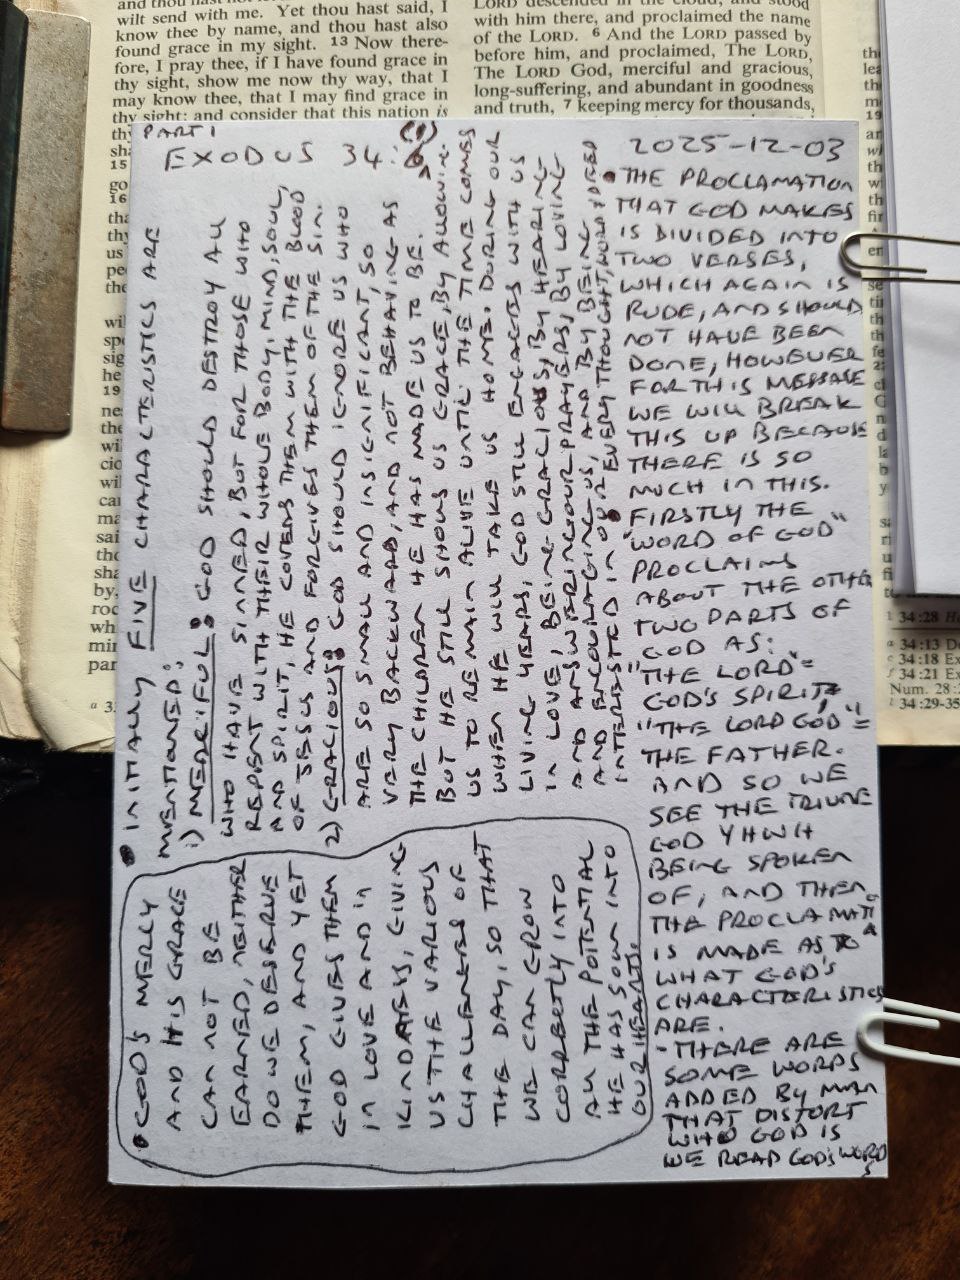 and thou hast
wilt send with me. Yet thou hast said, I
know thee by name, and thou hast also
found grace in my sight. 13 Now there-
fore, I pray thee, if I have found grace in
thy sight, show me now thy way, that I
may know thee, that I may find grace in
thy sight: and consider that this nation is
LORD descended in the cloud, and stood
with him there, and proclaimed the name
of the LORD. 6 And the LORD passed by
before him, and proclaimed, The LORD,
The LORD God, merciful and gracious,
long-suffering, and abundant in goodness
and truth, 7 keeping mercy for thousands,
PART 1
(1)
EXODUS 34:6
2025-12-03
• THE PROCLAMATION
THAT GOD MAKES
IS DIVIDED INTO
TWO VERSES,
WHICH AGAIN IS
RUDE, AND SHOULD
NOT HAVE BEEN
DONE, HOWEVER
FOR THIS MESSAGE
WE WILL BREAK
THIS UP BECAUSE
THERE IS SO
MUCH IN THIS.
• FIRSTLY THE
"WORD OF GOD"
PROCLAIMS
ABOUT THE OTHER
TWO PARTS OF
GOD AS:
"THE LORD" =
GOD'S SPIRIT,
"THE LORD GOD" =
THE FATHER.
AND SO WE
SEE THE TRIUNE
GOD YHWH
BEING SPOKEN
OF, AND THEN
THE PROCLAMATION
IS MADE AS TO
WHAT GOD'S
CHARACTERISTICS
ARE.
• THERE ARE
SOME WORDS
ADDED BY MAN
THAT DISTORT
WHO GOD IS
WE READ GOD'S WORDS
• INITIALLY FIVE CHARACTERISTICS ARE
MENTIONED:
1) MERCIFUL: GOD SHOULD DESTROY ALL
WHO HAVE SINNED, BUT FOR THOSE WHO
REPENT WITH THEIR WHOLE BODY, MIND, SOUL,
AND SPIRIT, HE COVERS THEM WITH THE BLOOD
OF JESUS AND FORGIVES THEM OF THE SIN.
2) GRACIOUS: GOD SHOULD IGNORE US WHO
ARE SO SMALL AND INSIGNIFICANT, SO
VERY BACKWARD, AND NOT BEHAVING AS
THE CHILDREN HE HAS MADE US TO BE.
BUT HE STILL SHOWS US GRACE, BY ALLOWING
US TO REMAIN ALIVE UNTIL THE TIME COMES
WHEN HE WILL TAKE US HOME. DURING OUR
LIVING YEARS, GOD STILL ENGAGES WITH US
IN LOVE, BEING GRACIOUS, BY HEARING
AND ANSWERING OUR PRAYERS, BY LOVING
AND ENCOURAGING US, AND BY BEING
INTERESTED IN OUR EVERY THOUGHT, WORD, DEED
• GOD'S MERCY
AND HIS GRACE
CAN NOT BE
EARNED, NEITHER
DO WE DESERVE
THEM, AND YET
GOD GIVES THEM
IN LOVE AND IN
KINDNESS, GIVING
US THE VARIOUS
CHALLENGES OF
THE DAY, SO THAT
WE CAN GROW
CORRECTLY INTO
ALL THE POTENTIAL
HE HAS SOWN INTO
OUR HEARTS.
34:28
34:13
34:18 Ex
34:21 Ex
Num. 28:2
34:29-35